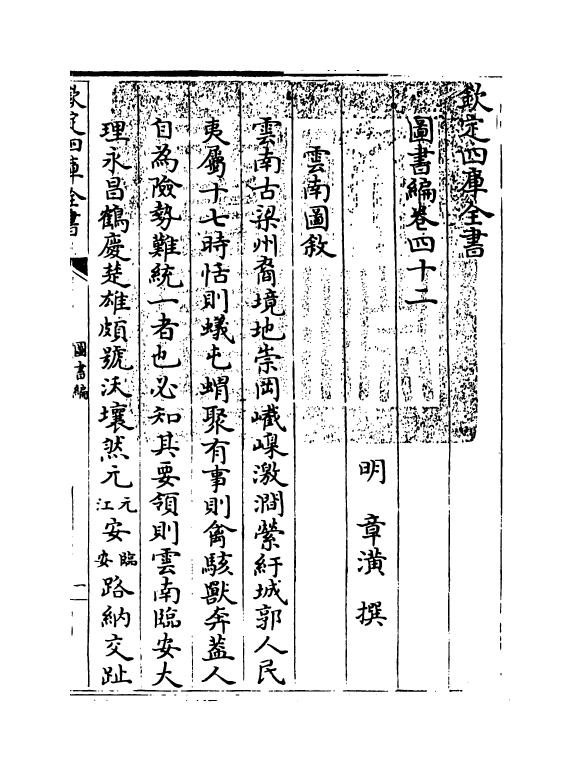 欽定四庫全書
圖書編卷四十二
明 章潢 撰
雲南圖敘
雲南古梁州裔境地崇岡巀嵲激澗縈紆城郭人民
夷屬十七時恬則蟻屯蝟聚有事則禽駭獸奔蓋人
自為險勢難統一者也必知其要領則雲南臨安大
理永昌鶴慶楚雄頗號沃壤然元元江安臨安路納交趾
欽定四庫全書
圖書編
一